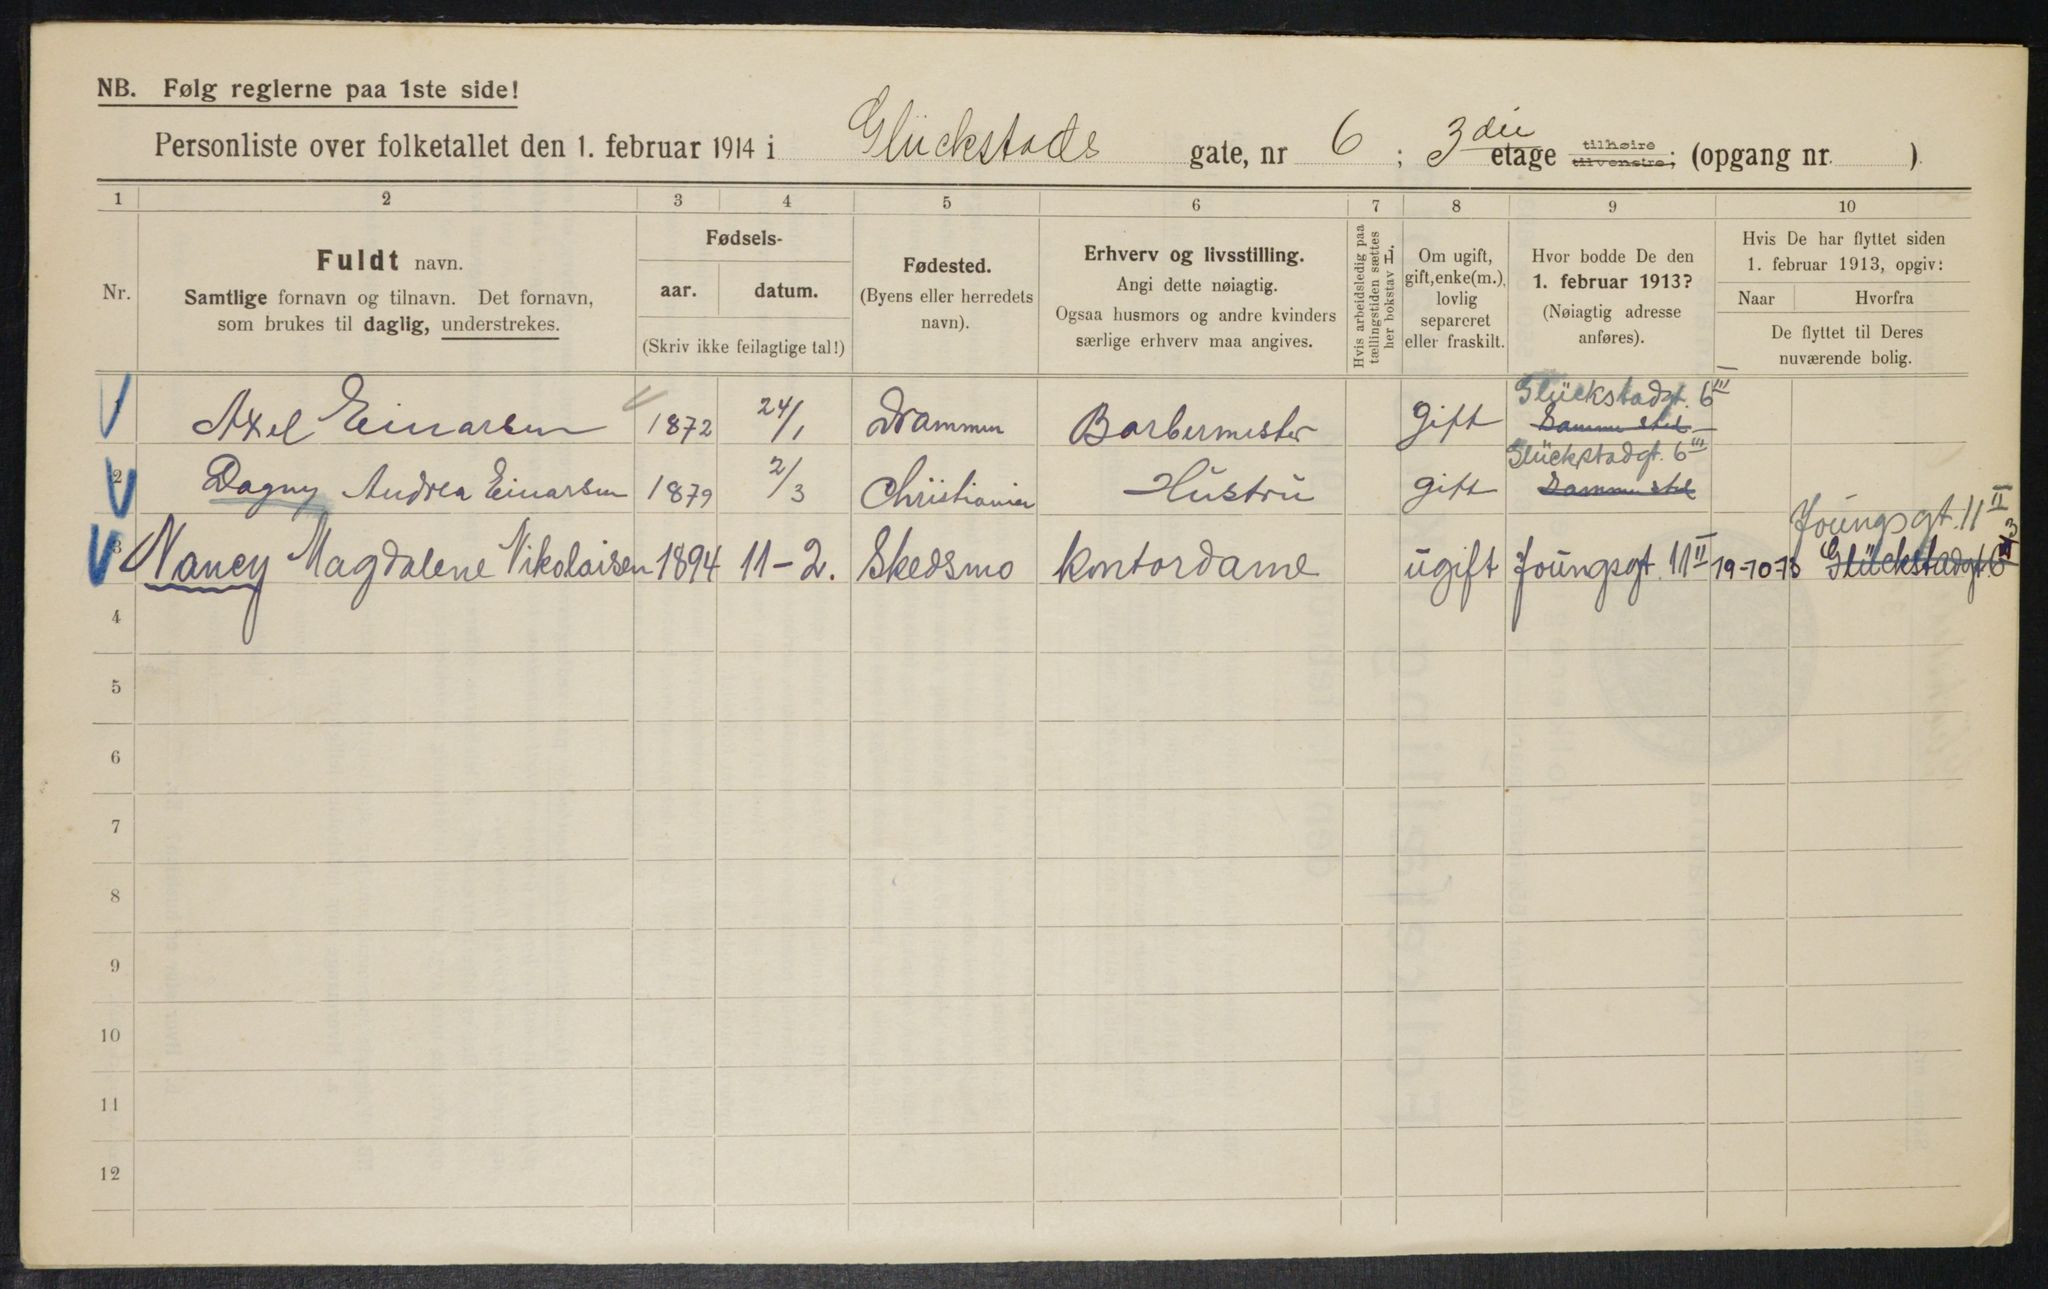 NB. Følg reglerne paa 1ste side!
Personliste over folketallet den 1. februar 1914 i Glückstads gate, nr 6 ; 3die etage tilhøire tilvenstre; (opgang nr. )
1 2 3 4 5 6 7 8 9 10
Nr.
Fuldt navn.
Samtlige fornavn og tilnavn. Det fornavn,
som brukes til daglig, understrekes.
Fødsels-
aar. datum.
(Skriv ikke feilagtige tal!)
Fødested.
(Byens eller herredets
navn).
Erhverv og livsstilling.
Angi dette nøiagtig.
Ogsaa husmors og andre kvinders
særlige erhverv maa angives.
Hvis arbeidsledig paa
tællingstiden sættes
her bokstav L.
Om ugift,
gift, enke(m.),
lovlig
separeret
eller fraskilt.
Hvor bodde De den
1. februar 1913?
(Nøiagtig adresse
anføres).
Hvis De har flyttet siden
1. februar 1913, opgiv:
Naar Hvorfra
De flyttet til Deres
nuværende bolig.
Glückstadgt. 6 III
1 Axel Einarsen 1872 24/1 Drammen Barbermester gift Samme sted
Glückstadgt. 6 III
2 Dagny Andrea Einarsen 1879 2/3 Christiania Hustru gift Samme sted
Youngsgt. 11 II
3 Nancy Magdalene Nikolaisen 1894 11-2. Skedsmo Kontordame ugift Youngsgt. 11 II 19-10-13 Glückstadgt. 6
4
5
6
7
8
9
10
11
12